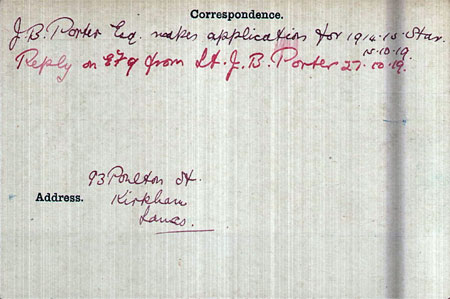 Correspondence.
J.B. Porter Esq. makes application for 1914-15 Star.
15.10.19.
Reply on E79 from Lt. J.B. Porter 27.10.19.
93 Poulton St.
Address. Kirkham
Lancs.